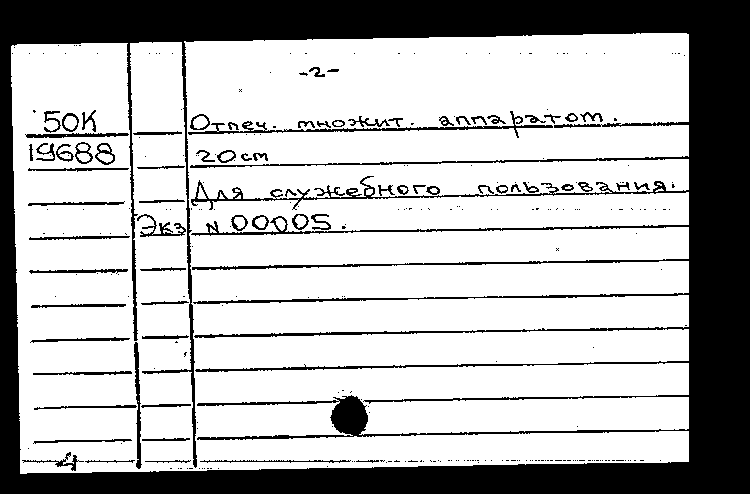 -2-
50К Отпеч. множит. аппаратом.
19688 20 см
Для служебного пользования.
Экз N 00005.
4